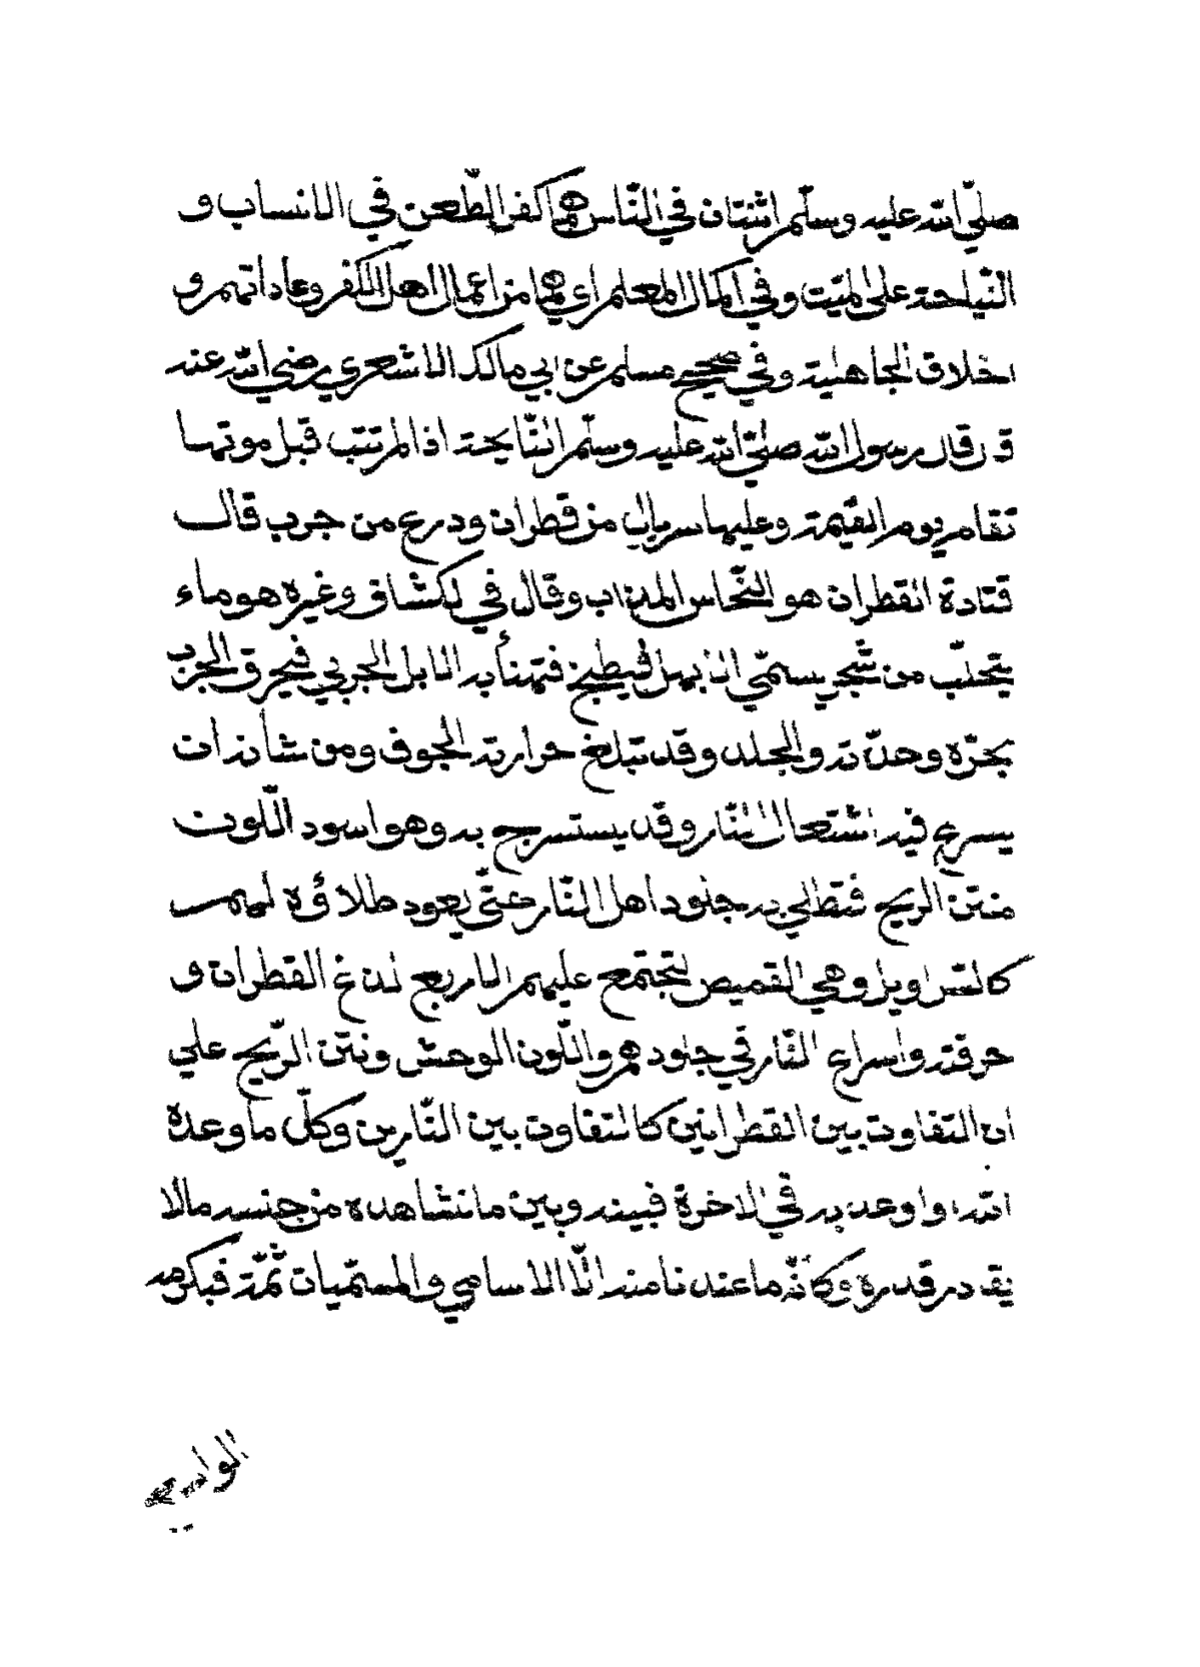 صلّي الله عليه وسلّم اثنتان في النّاس هما كفر الطّعن في الانساب و
النّياحة علي الميّت وفي اكمال المعلم اي هما من اعمال اهل الكفر وعاداتهم و
اخلاق الجاهلية وفي صحيح مسلم عن ابي مالك الاشعري رضي الله عنه
ق قال رسول الله صلّي الله عليه وسلّم النّايحة اذا لم تتب قبل موتها
تقام يوم القيمة وعليها سربال من قطران ودرع من جرب قال
قتادة القطران هو النّحاس المذاب وقال في لكشاف وغيره هو ماء
يتحلّب من شجر يسمّي الابهل فيطبخ فتهنأ به الابل الجربي فيحرق الجرب
بحرّه وحدّته والجلد وقد تبلغ حرارته الجوف ومن شأنه ان
يسرع فيه اشتعال النّار وقد يستسرج به وهو اسود اللّون
منتن الريح فتطلي به جلود اهل النّار حتّي يعود طلاؤه لهم
كالسّراويل وهي القميص لتجتمع عليهم الاربع لذع القطران و
حرقته واسراع النّار في جلودهم واللّون الوحش ونتن الرّيح علي
ان التفاوت بين القطرانين كالتفاوت بين النّارين وكلّ ما وعده
الله او اوعد به في الاخرة فبينه وبين ما نشاهده من جنسه مالا
يقدر قدره وكأنّه ما عندنا منه الّا الاسامي والمسمّيات ثمّة فبكرمه
الواسع